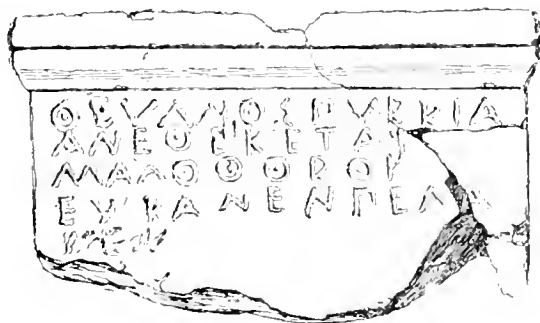 ΘΕΥΛΛΟΣΠΥΡΡΙΑ
ΑΝΕΘΕΚΕΤΑΙ
ΜΑΛΟΦΟΡΟΙ
ΕΥΧΑΝΕΝΠΕΛ